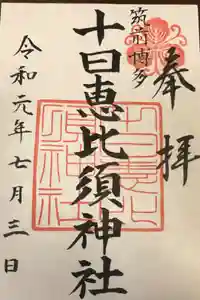 奉拝
筑前博多
十日恵比須神社
令和元年七月三日